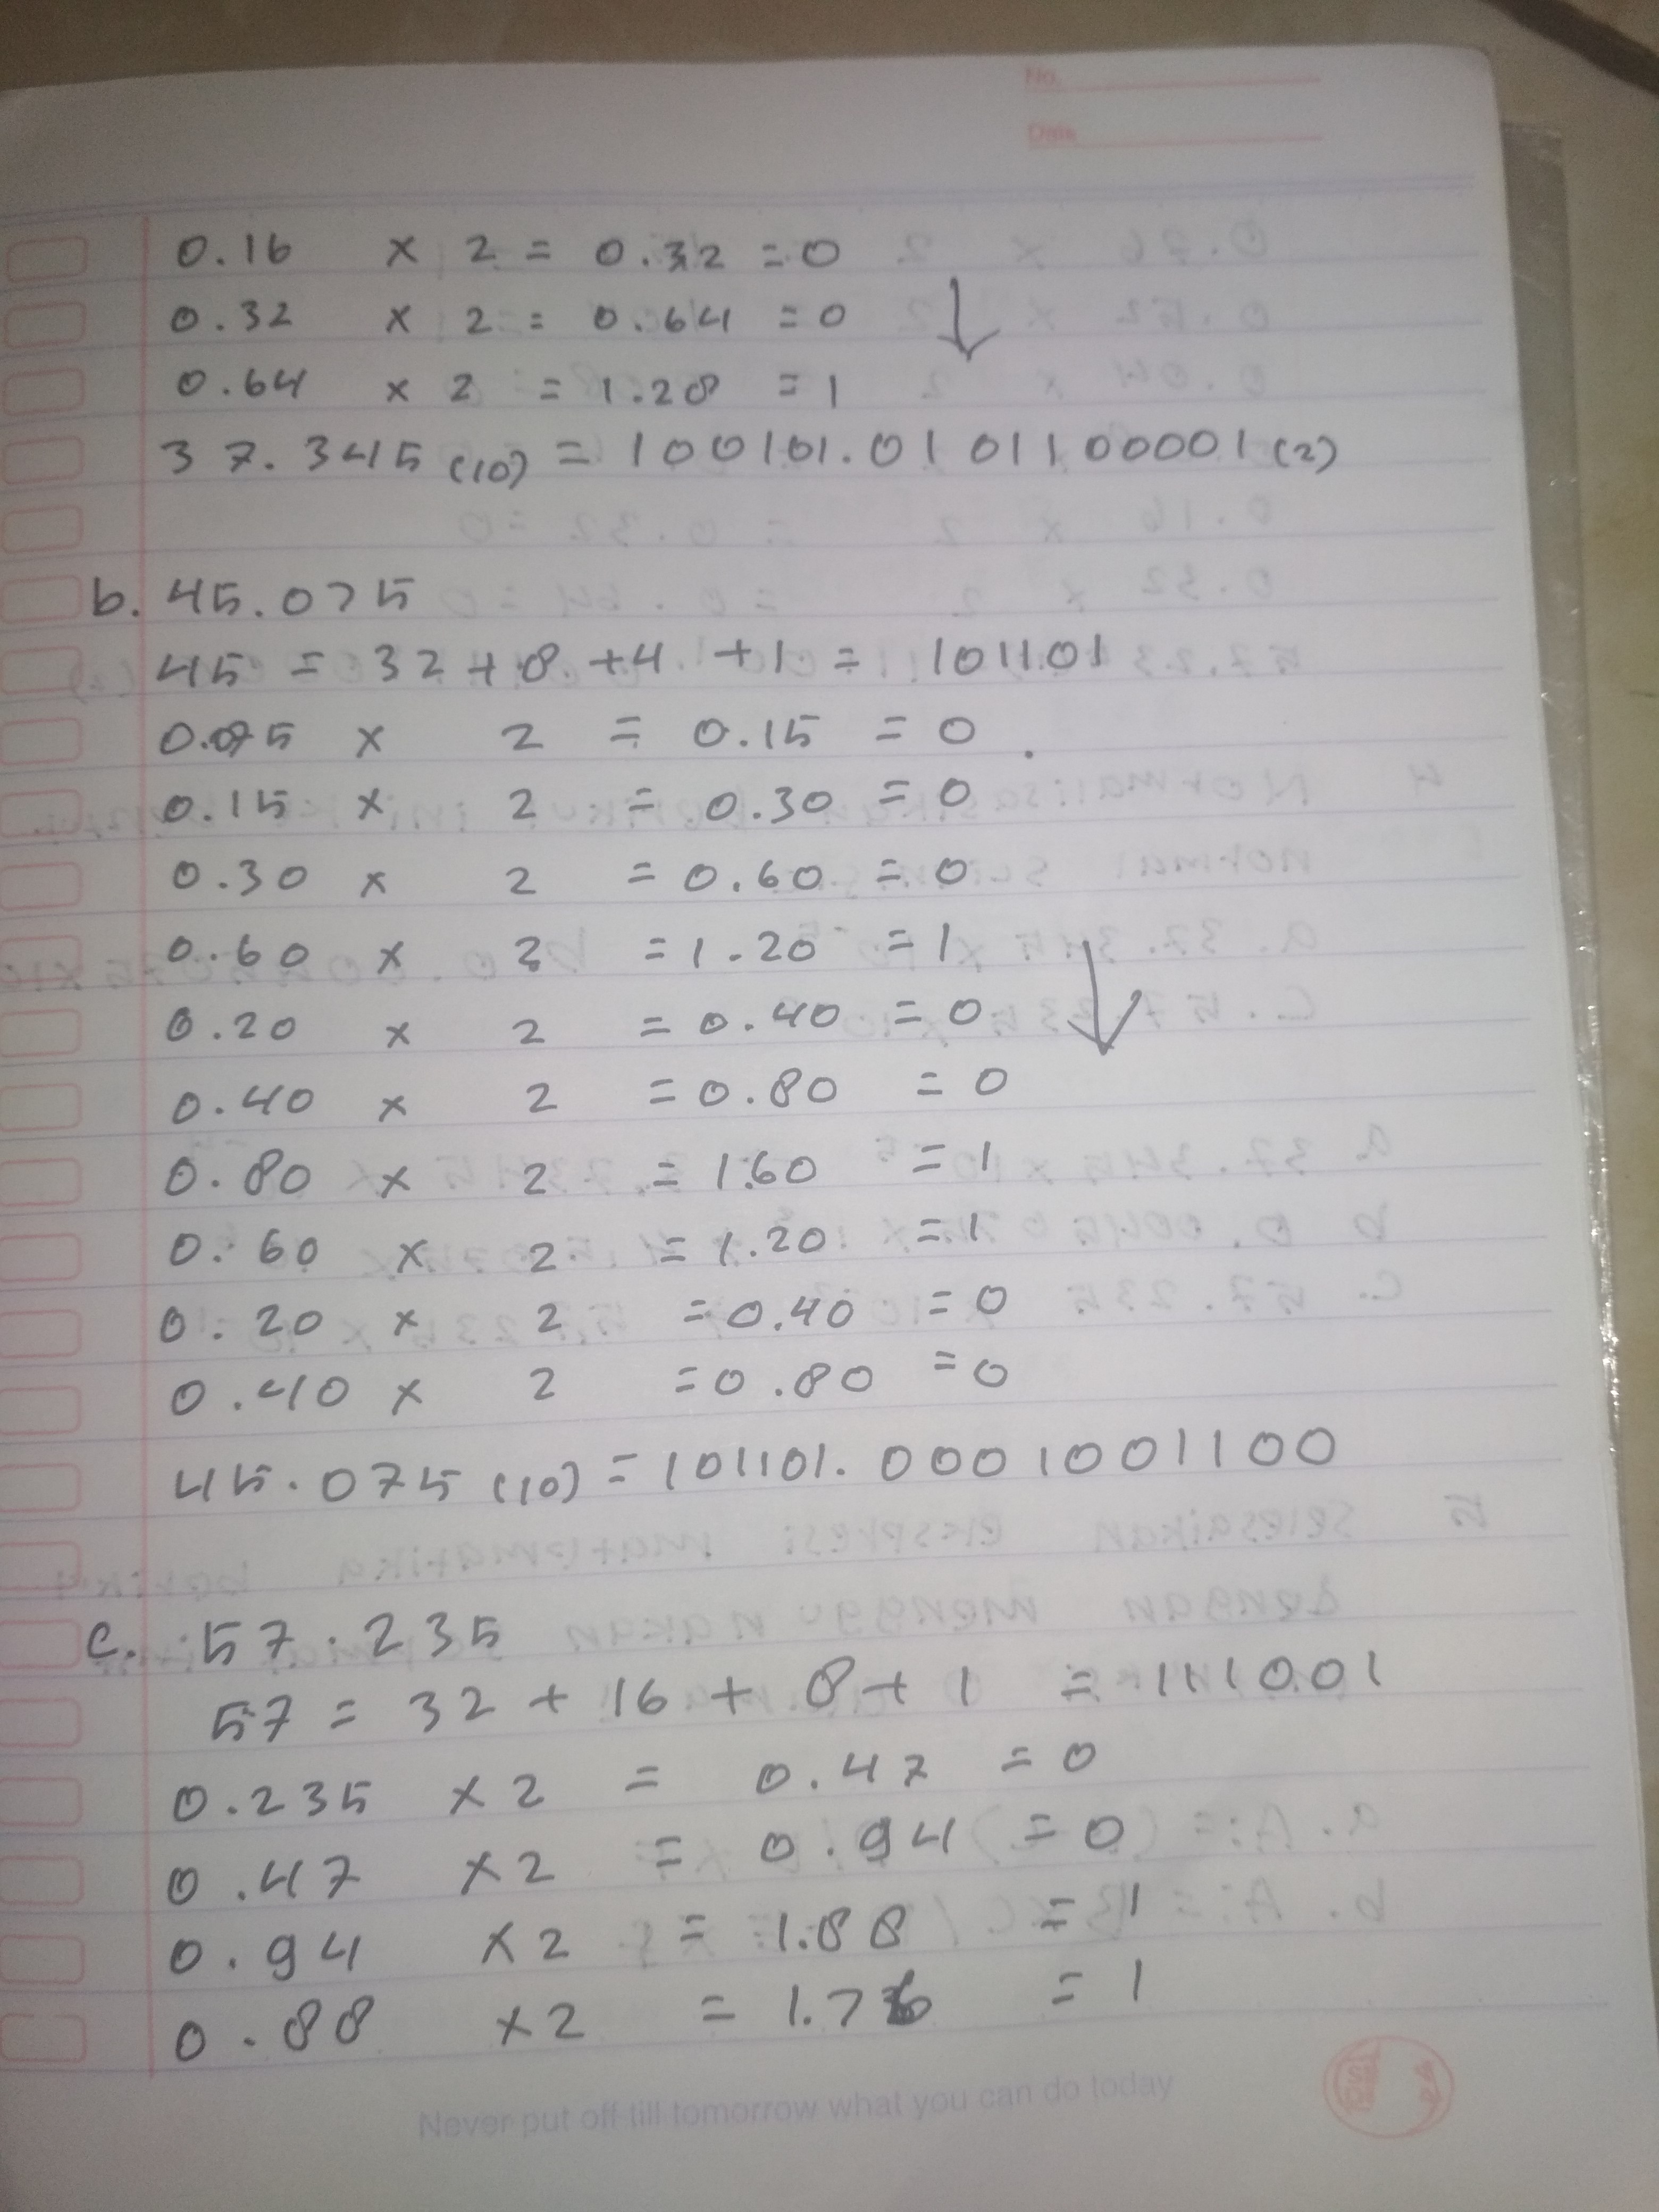 No.
Date
0.16 x 2 = 0.32 = 0
0.32 x 2 = 0.64 = 0
0.64 x 2 = 1.28 = 1
37.345 (10) = 100101.0101100001 (2)
b. 45.075
45 = 32 + 8 + 4 + 1 = 101101
0.075 x 2 = 0.15 = 0
0.15 x 2 = 0.30 = 0
0.30 x 2 = 0.60 = 0
0.60 x 2 = 1.20 = 1
0.20 x 2 = 0.40 = 0
0.40 x 2 = 0.80 = 0
0.80 x 2 = 1.60 = 1
0.60 x 2 = 1.20 = 1
0.20 x 2 = 0.40 = 0
0.40 x 2 = 0.80 = 0
45.075 (10) = 101101.0001001100
c. 57.235
57 = 32 + 16 + 8 + 1 = 111001
0.235 x 2 = 0.47 = 0
0.47 x 2 = 0.94 = 0
0.94 x 2 = 1.88 = 1
0.88 x 2 = 1.76 = 1
Never put off till tomorrow what you can do today